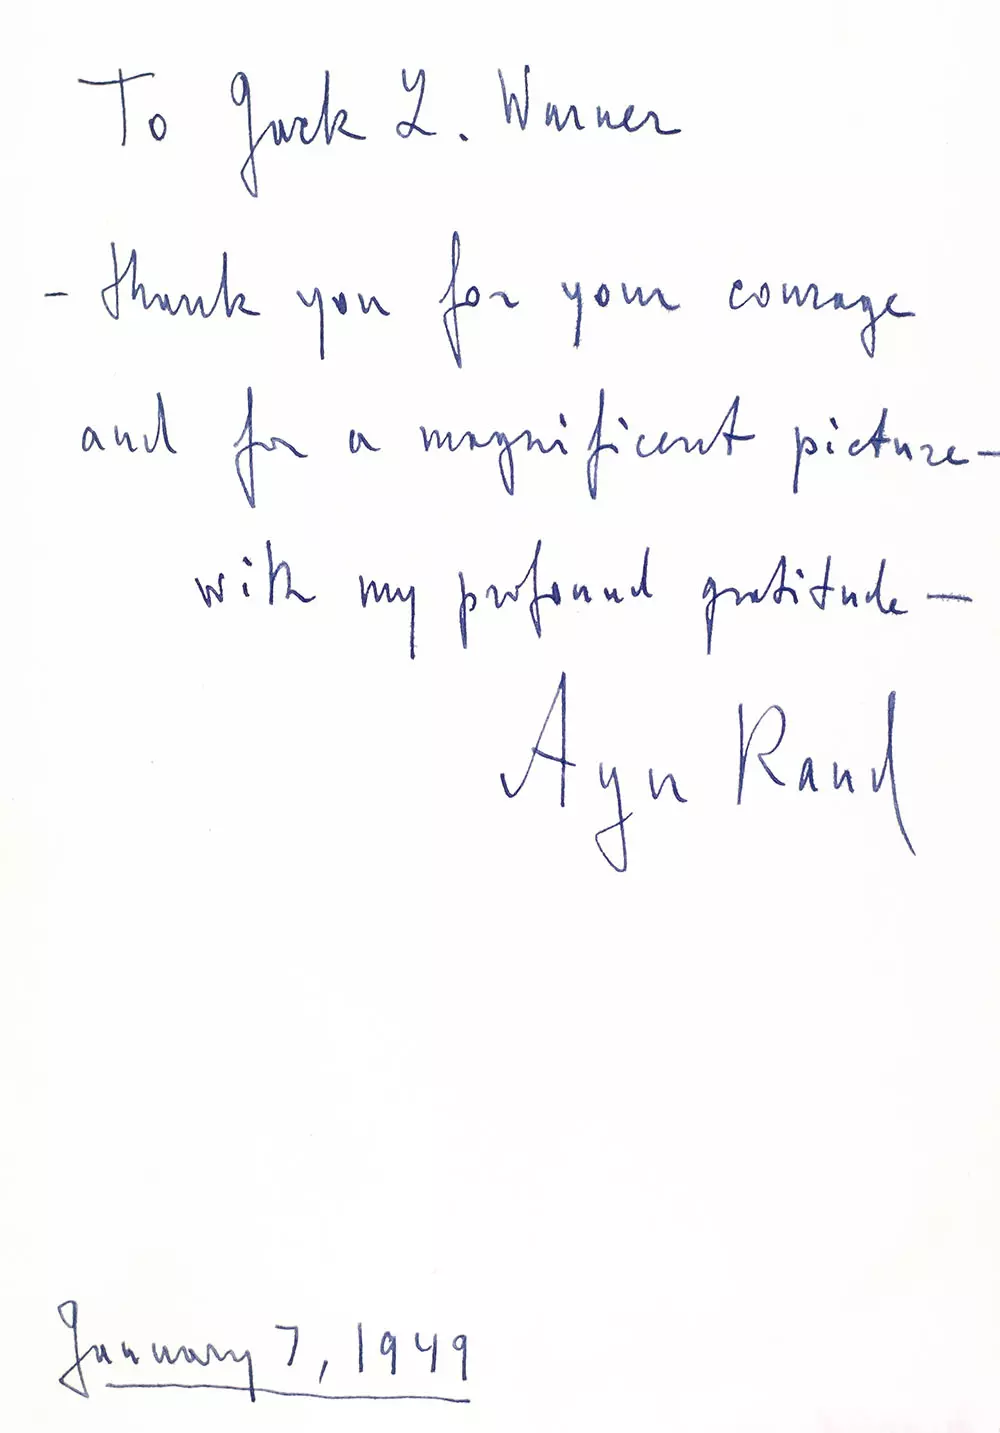 To Jack L. Warner
- thank you for your courage
and for a magnificent picture —
with my profound gratitude —
Ayn Rand
January 7, 1949